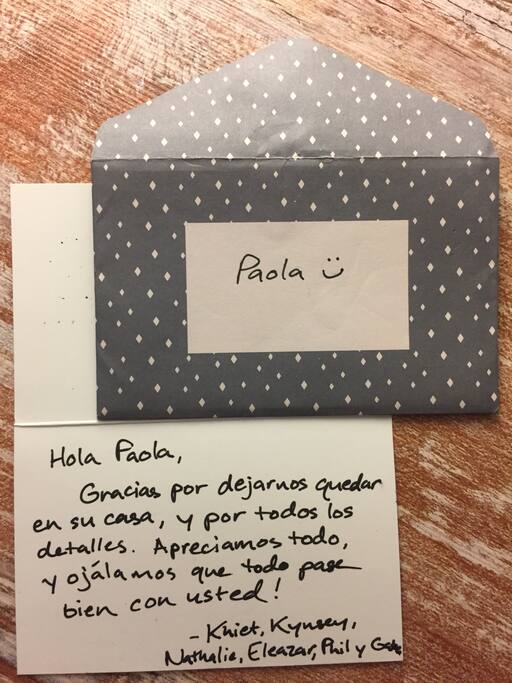 Paola
Hola Paola,
Gracias por dejarnos quedar
en su casa, y por todos los
detalles. Apreciamos todo,
y ojálamos que todo pase
bien con usted!
- Khiet, Kynsey,
Nathalie, Eleazar, Phil y